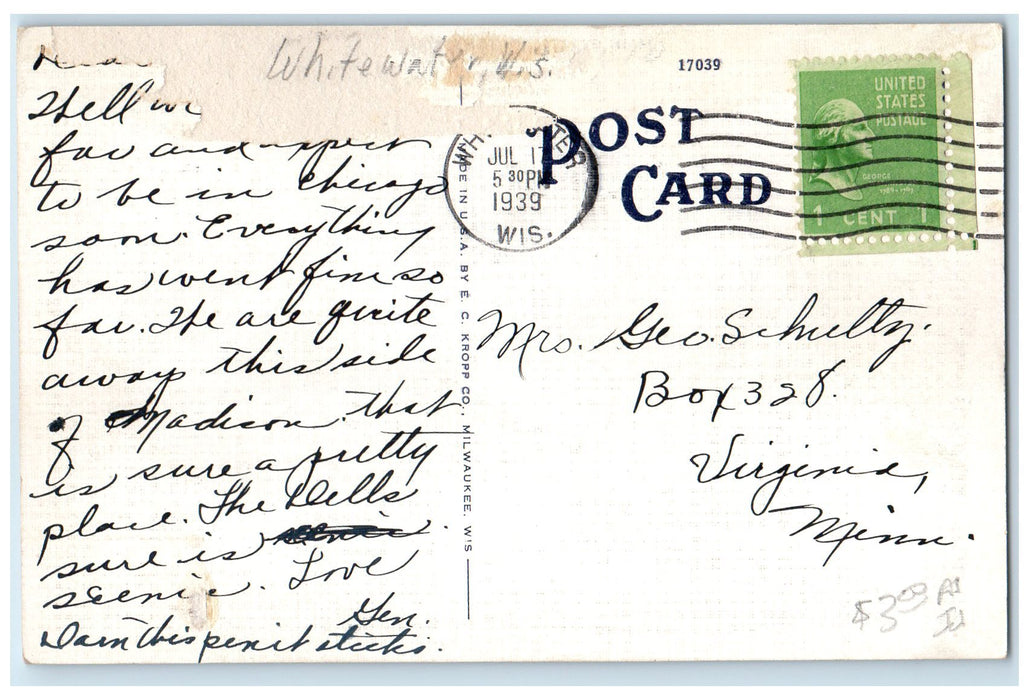 Whitewater, Wis.
Well we
far and expect
to be in Chicago
soon. Everything
has went fine so
far. We are quite
away this side
of Madison. That
is sure a pretty
place. The Dells
sure is
scenic. Love
Gen.
Darn this pen it sticks.
MADE IN U.S.A. BY E. C. KROPP CO., MILWAUKEE, WIS
17039
POST
CARD
JUL 17
5 30 PM
1939
WIS.
UNITED
STATES
POSTAGE
GEORGE
1789-1797
1 CENT 1
Mrs. Geo. Schultz.
Box 328.
Virginia,
Minn.
$3.00